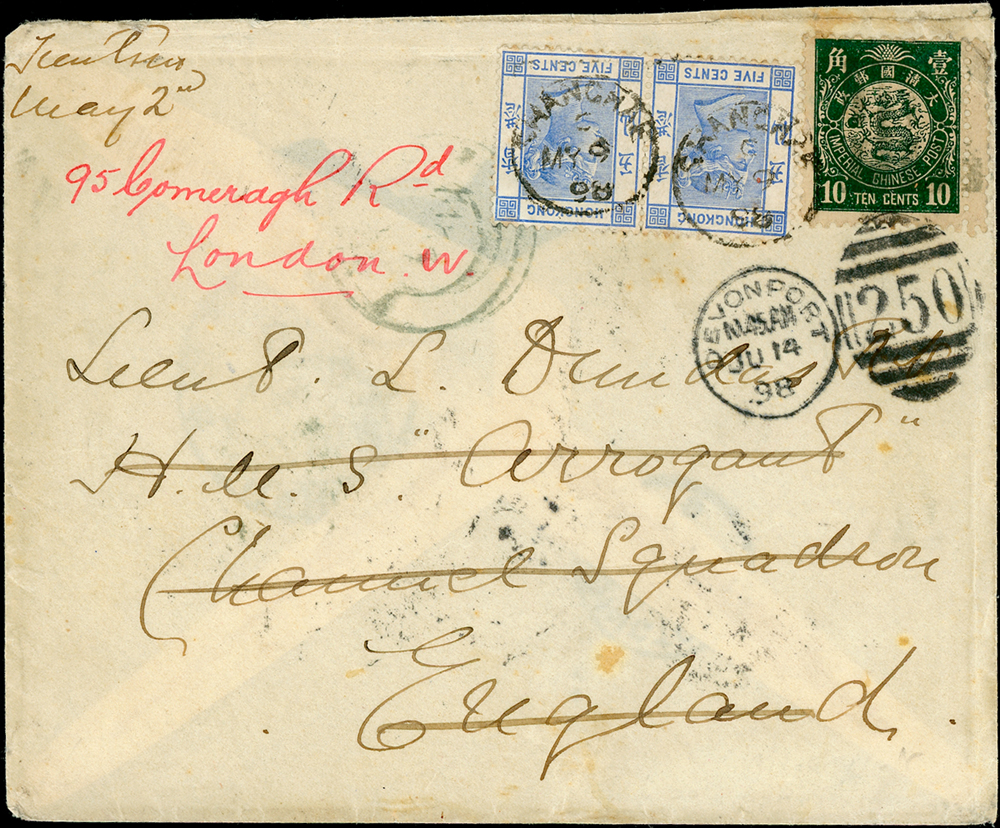 Tientsin
May 2nd
95 Comeragh Rd
London. W.
Lieut. L. Dundas RN
H.M.S. "Arrogant"
Channel Squadron
England.
FIVE CENTS
HONGKONG
FIVE CENTS
HONGKONG
SHANGHAI
MY 9
98
SHANGHAI
MY 9
98
角 壹
大清國郵政
IMPERIAL CHINESE POST
10 TEN CENTS 10
DEVONPORT
JU 14
98
250